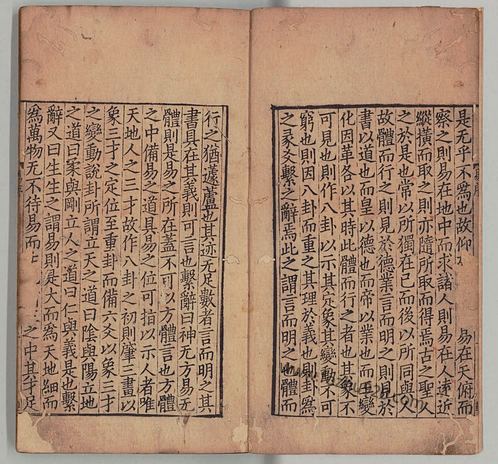 是无乎不爲也故仰 易在天俯而
察之則易在地中而求諸人則易在人遠近
縱横而取之則亦隨所取而得焉古之聖人
之於是也常以所獨在已而後以所同與人
故體而行之則見於德業言而明之則現於
書以道也而皇以德也而帝以業也而王變
化因革各以其時此體而行之者也其象不
可見也則作八卦而其象定其變動不
窮也則因八卦而重之其理於義也則卦爲
之彖爻繫之辭焉此之謂言而明之也體而
行之猶蘧蘆也其迹无足數者言而明之其
書具在其義則可言也繫辭曰神无方易无
體則是易之所在蓋不可以方體言也惟易
之中備易之道具易之位可指以示人者唯
天地人之三才故作八卦之初則肇三畫以
象三才之定位至重卦而備六爻以象三才
之變動說卦所謂立天之道曰陰與陽立地
之道曰柔與剛立人之道曰仁與義是也繫
辭又曰生生之謂易則是大而爲天地細而
爲萬物无不待易而 之中其才足